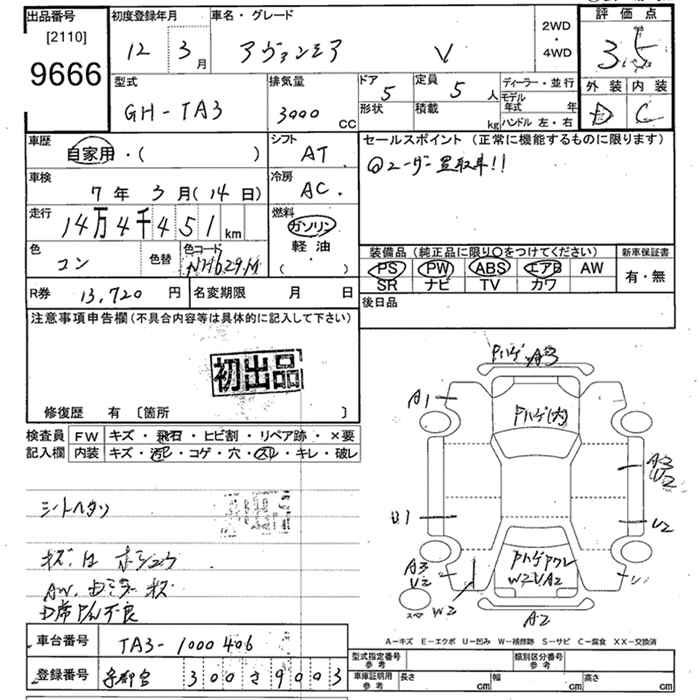 出品番号 初度登録年月 車名・グレード 2WD・4WD 評価点
[2110]
9666
12 3月 アヴァンシア V 3.5
型式 排気量 ドア 定員 ディーラー・並行 外装 内装
GH-TA3 3000 CC 5 5人 モデル年式 年 D C
形状 積載 kg ハンドル 左・右
車歴 シフト セールスポイント(正常に機能するものに限ります)
自家用・( ) AT
ユーザー買取車!!
車検 冷房
7年 3月(14日) AC
走行 燃料
14万4千451km ガソリン
軽油
・( )
色 色替 色コード
コン NH629M
装備品(純正品に限り○をつけてください) 新車保証書
PS PW ABS エアB AW 有・無
SR ナビ TV カワ
R券 13,720円 名変期限 月 日 後日品
注意事項申告欄(不具合内容等は具体的に記入して下さい)
初出品
修復歴 有 [箇所 ]
検査員 FW キズ・飛石・ヒビ割・リペア跡・×要
記入欄 内装 キズ・汚レ・コゲ・穴・スレ・キレ・破レ
Pハゲ A3
A1
Pハゲ(内)
A3
W2
U1
U2
A3
U2
W2
スペア
A2
シートヘタリ
A-キズ E-エクボ U-凹み W-補修跡 S-サビ C-腐食 XX-交換済
車台番号 TA3-1000406
型式指定番号 参考 類別区分番号 参考
登録番号 300 さ 9003
車庫証明用 参考 長さ cm 幅 cm 高さ cm